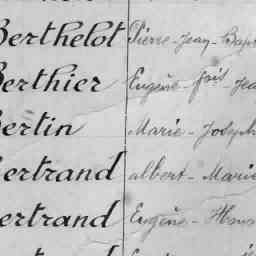 Berthelot Pierre-Jean-Bap
Berthier Eugène-
Bertin Marie-Joseph
Bertrand Albert-Marie
Bertrand Eugène-